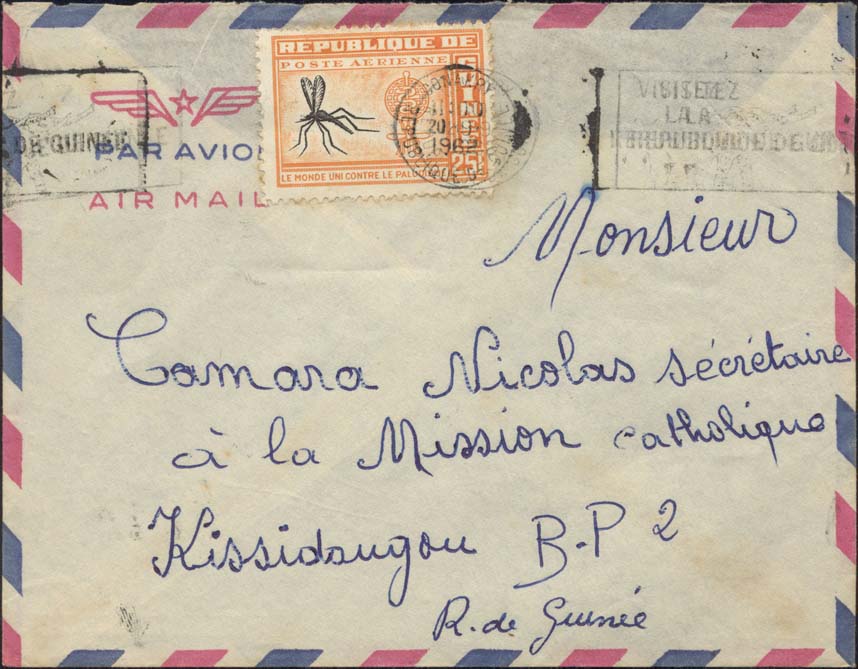 REPUBLIQUE DE
GUINEE
POSTE AERIENNE
25F
LE MONDE UNI CONTRE LE
CONAKRY
20
1962
DE GUINEE
VISITEZ
LA
PAR AVION
AIR MAIL
Monsieur
Camara Nicolas sécrétaire
à la Mission catholique
Kissidougou B.P 2
R. de Guinée